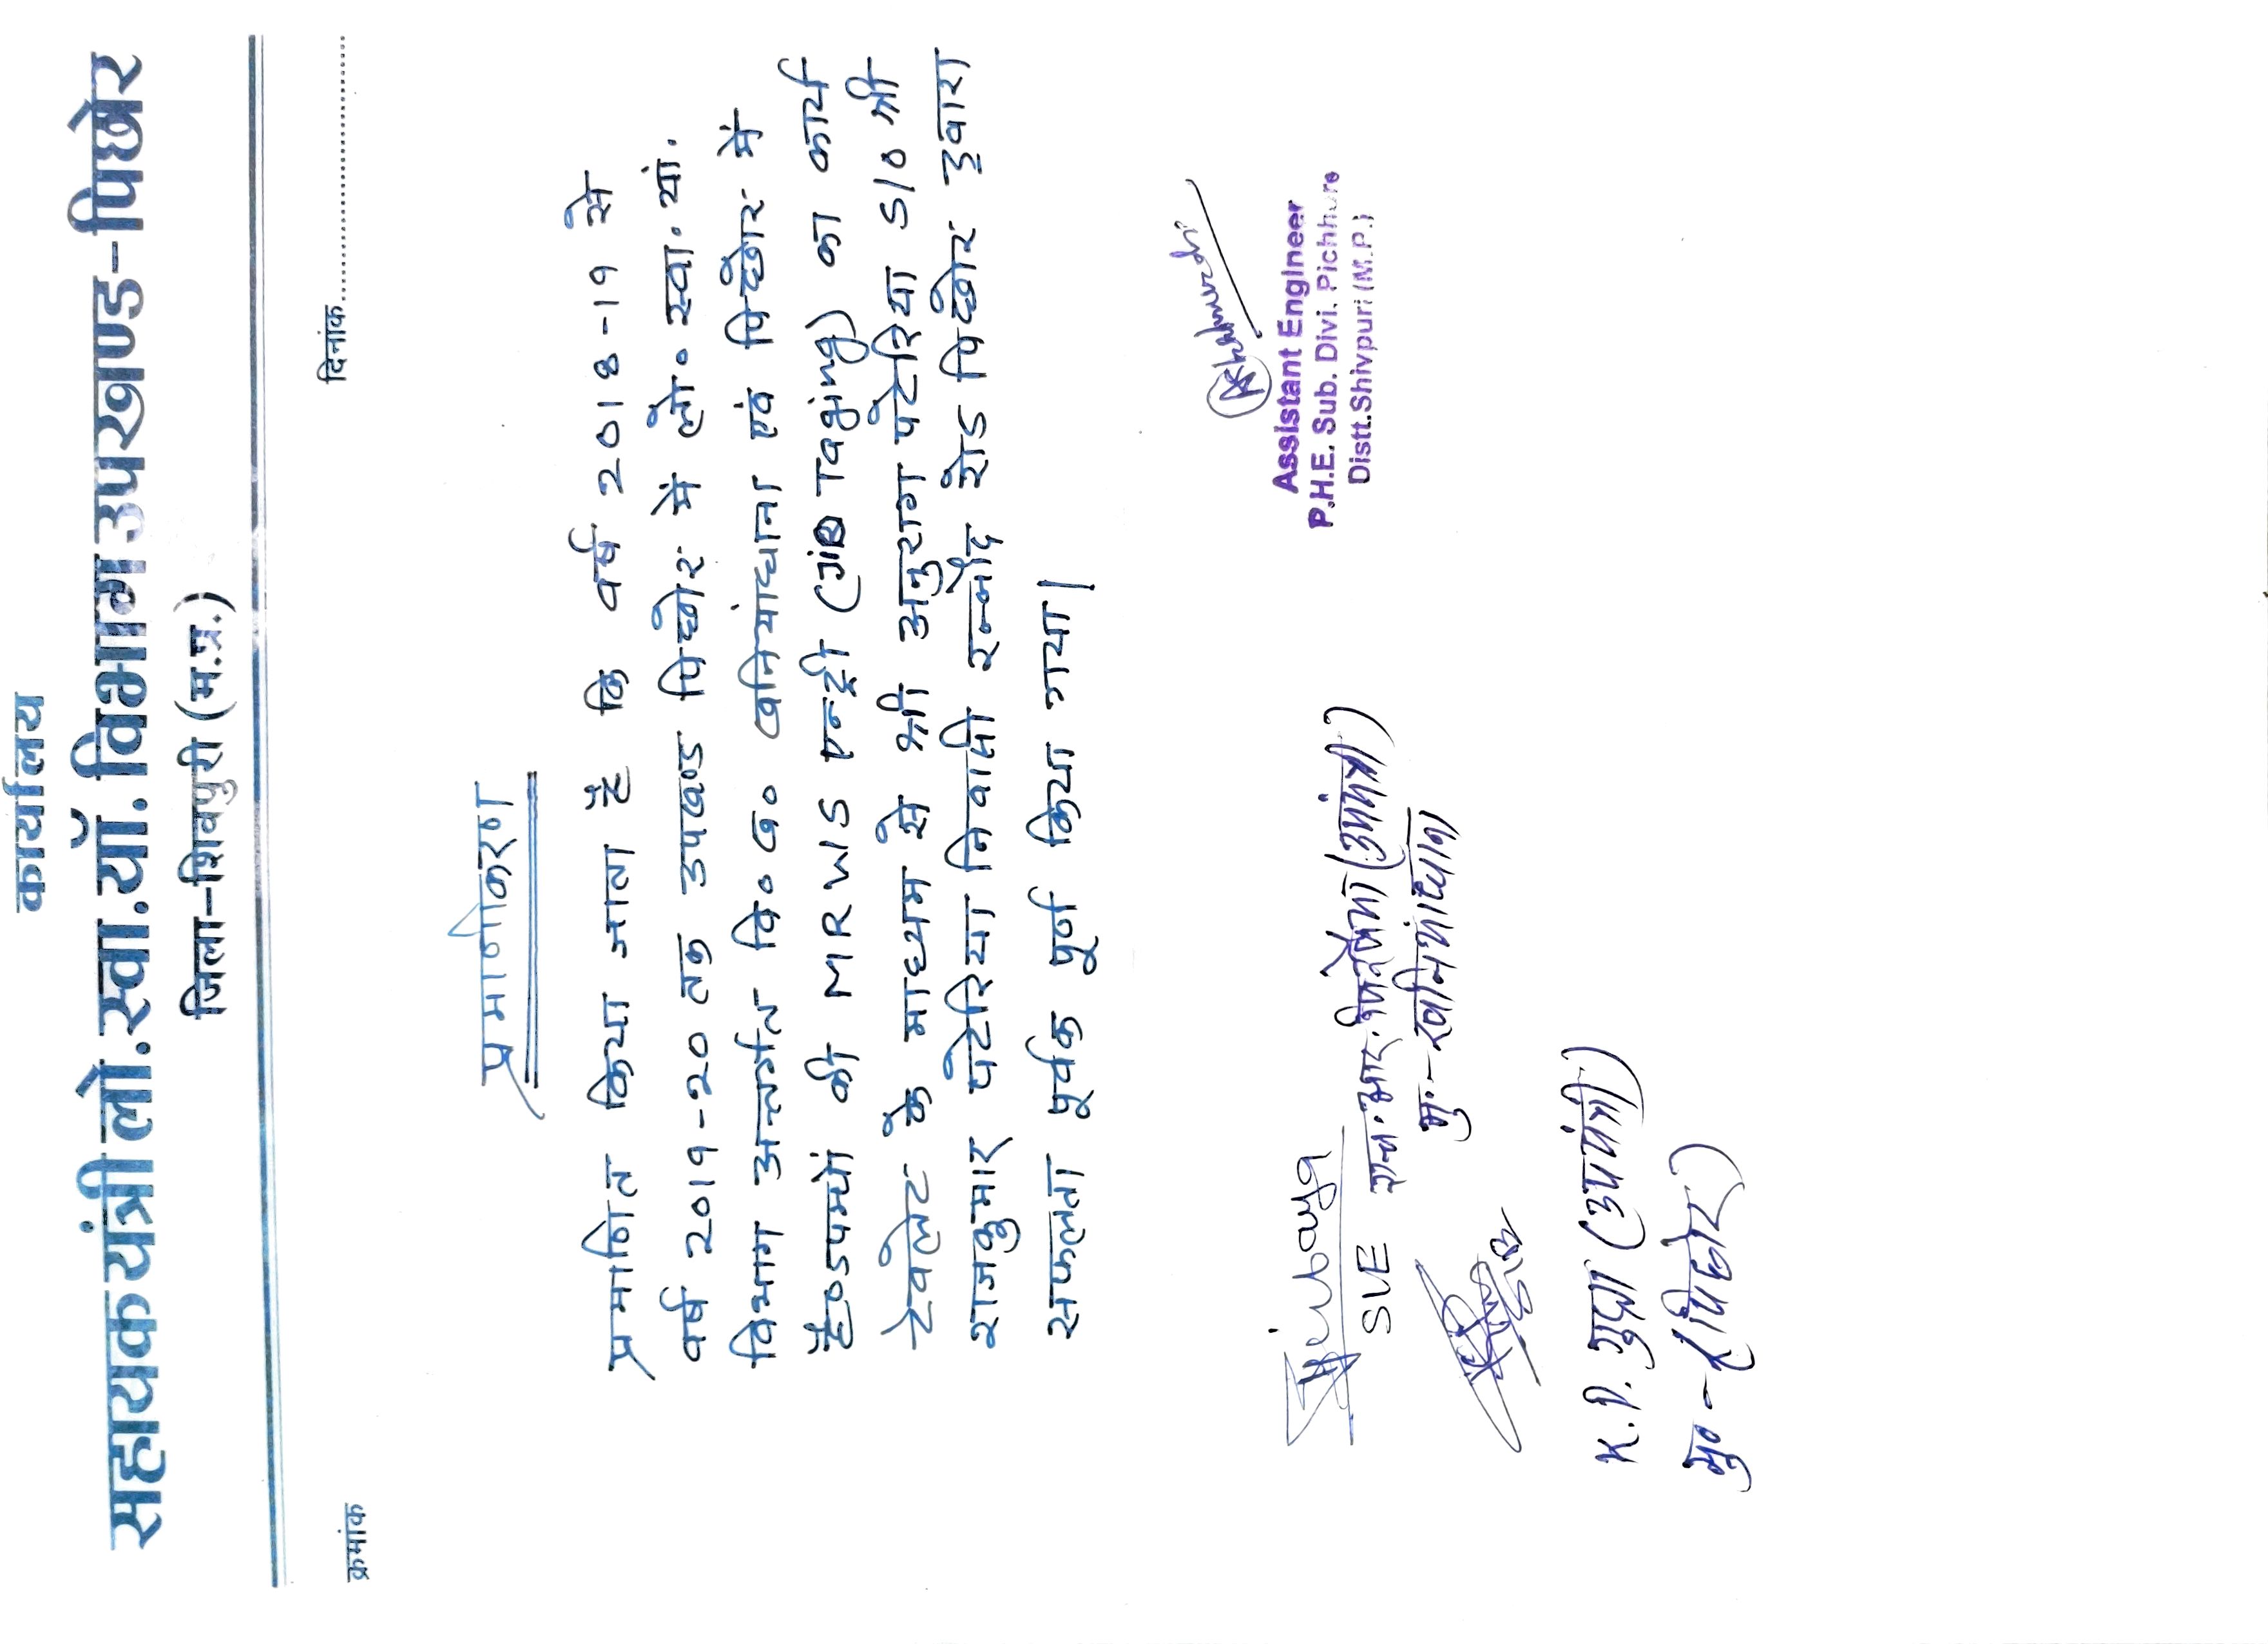 कार्यालय
सहायक यंत्री लो.स्वा.याँ. विभाग उपखण्ड-पिछोर
जिला-शिवपुरी (म.प्र.)
क्रमांक
दिनांक........................
प्रमाणीकरण
प्रमाणित किया जाता है कि वर्ष 2018-19 से
वर्ष 2019-20 तक उपखण्ड पिछोर में लो० स्वा. यां.
विभाग अन्तर्गत वि० ख० खनियांधाना एवं पिछोर में
हैण्डपम्पों की MRWS एन्ट्री (JIO Taging) का कार्य
टेबलेट के माध्यम से श्री अनुराग पटेरिया S/O श्री
राजकुमार पटेरिया निवासी रन्नौद रोड पिछोर द्वारा
सफलता पूर्वक पूर्ण किया गया।
Assistant Engineer
P.H.E. Sub. Divi. Pichhore
Distt. Shivpuri (M.P.)
SUE
एन. आर. (उपयंत्री)
मु:- खनियांधाना
K.P. गुप्ता (उपयंत्री)
मु० - (पिछोर)